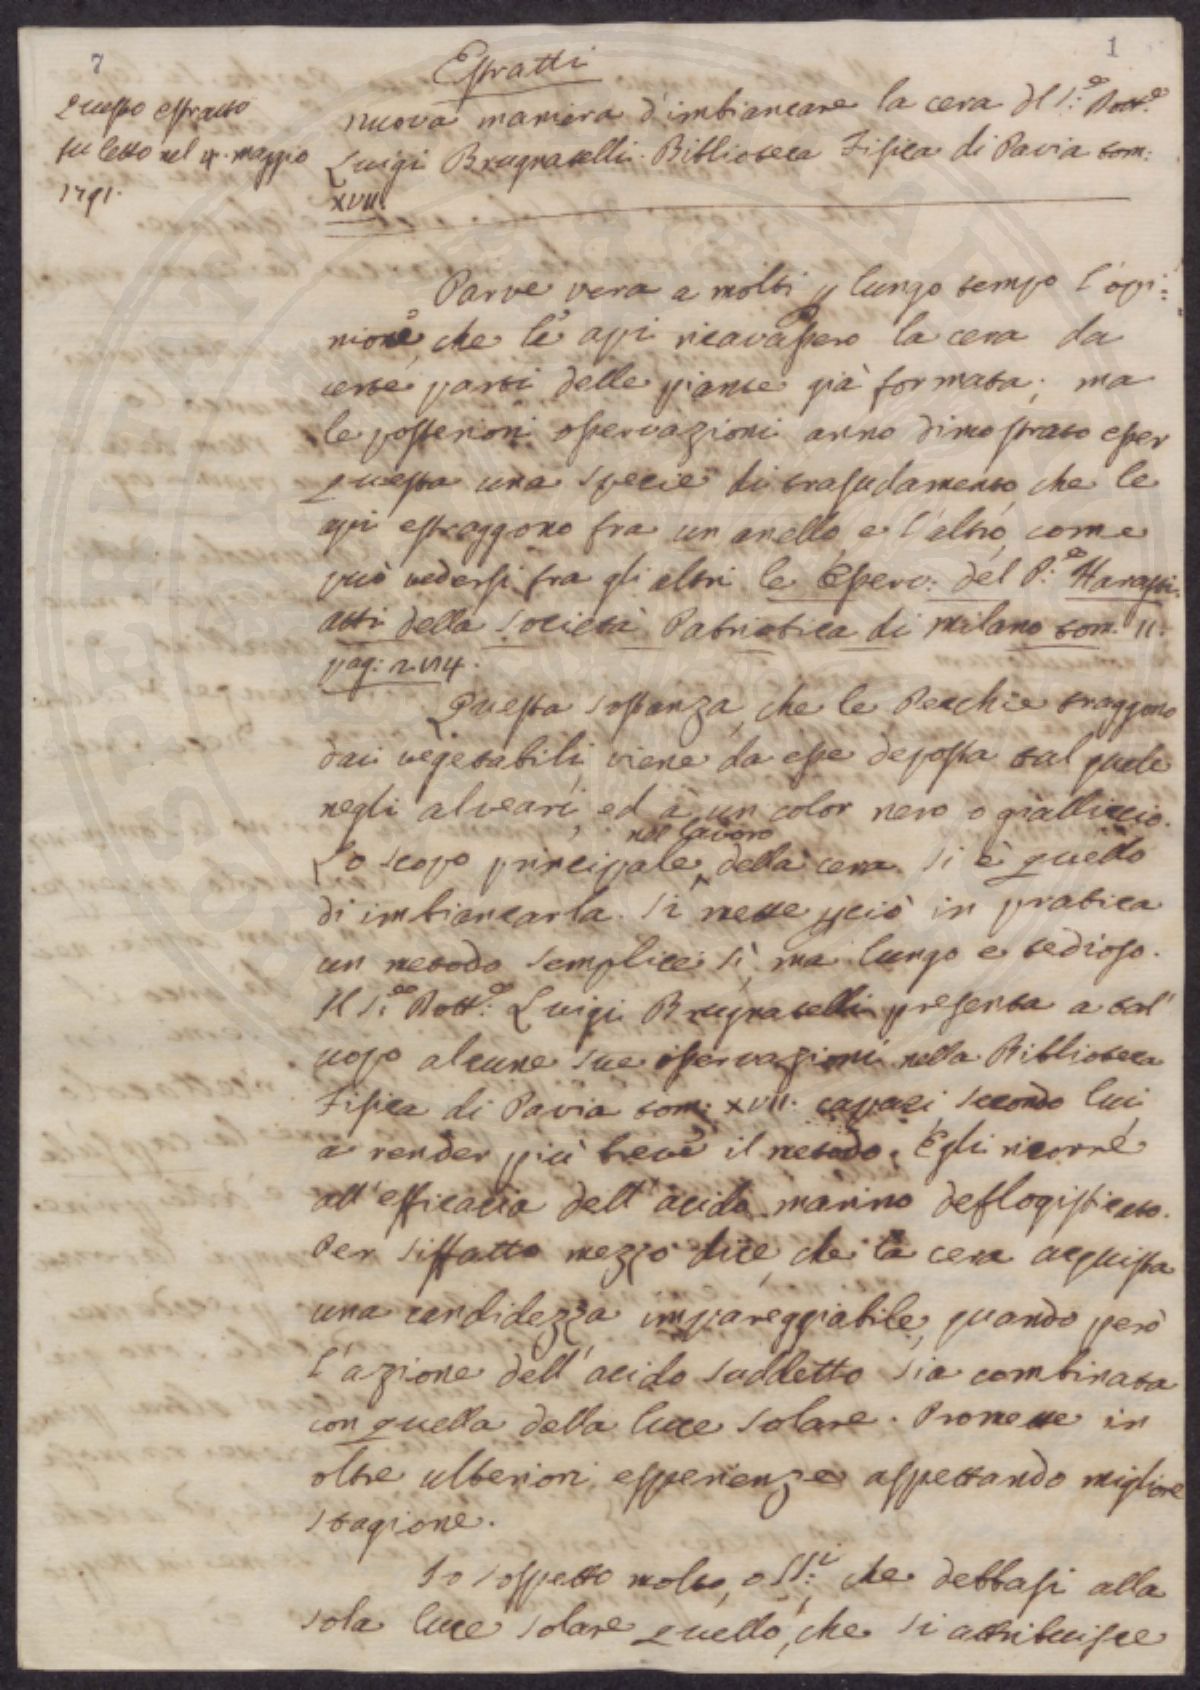 7
1
Estratti
Questo estratto
fu letto nel 4. maggio
1791.
nuova maniera d'imbiancare la cera del S.e Dott.e
Luigi Brugnatelli. Biblioteca Fisica di Pavia tom:
XVII.
Parve vera a molti p lungo tempo l'opi:
nione, che le api ricavassero la cera da
certe parti delle piante già formata; ma
le posteriori osservazioni anno dimostrato esser
questa una specie di trasudamento, che le
api estraggono fra un anello, e l'altro, come
può vedersi fra gli altri le Osserv: del P.e Harasti:
atti della Società Patriotica di Milano tom. II.
pag: 204.
Questa sostanza, che le Pecchie traggono
dai vegetabili, viene da esse deposta tal quale
negli alveari, ed à un color nero o gialliccio.
Lo scopo principale nel lavoro della cera si è quello
di imbiancarla. Si mette pciò in pratica
un metodo semplice sì, ma lungo e tedioso.
Il S.e Dott.e Luigi Brugnatelli presenta a tal'
uopo alcune sue osservazioni nella Biblioteca
Fisica di Pavia tom: XVII. capaci secondo lui
a render più breve il metodo. Egli ricorre
all'efficacia dell'acido marino deflogisticato.
Per siffatto mezzo dice, che la cera acquista
una candidezza impareggiabile, quando però
l'azione dell'acido suddetto sia combinata
con quella della luce solare. Promette in
oltre ulteriori esperienze aspettando migliore
stagione.
Io sospetto molto, o SS:i, che debbasi alla
sola luce solare quello, che si attribuisce